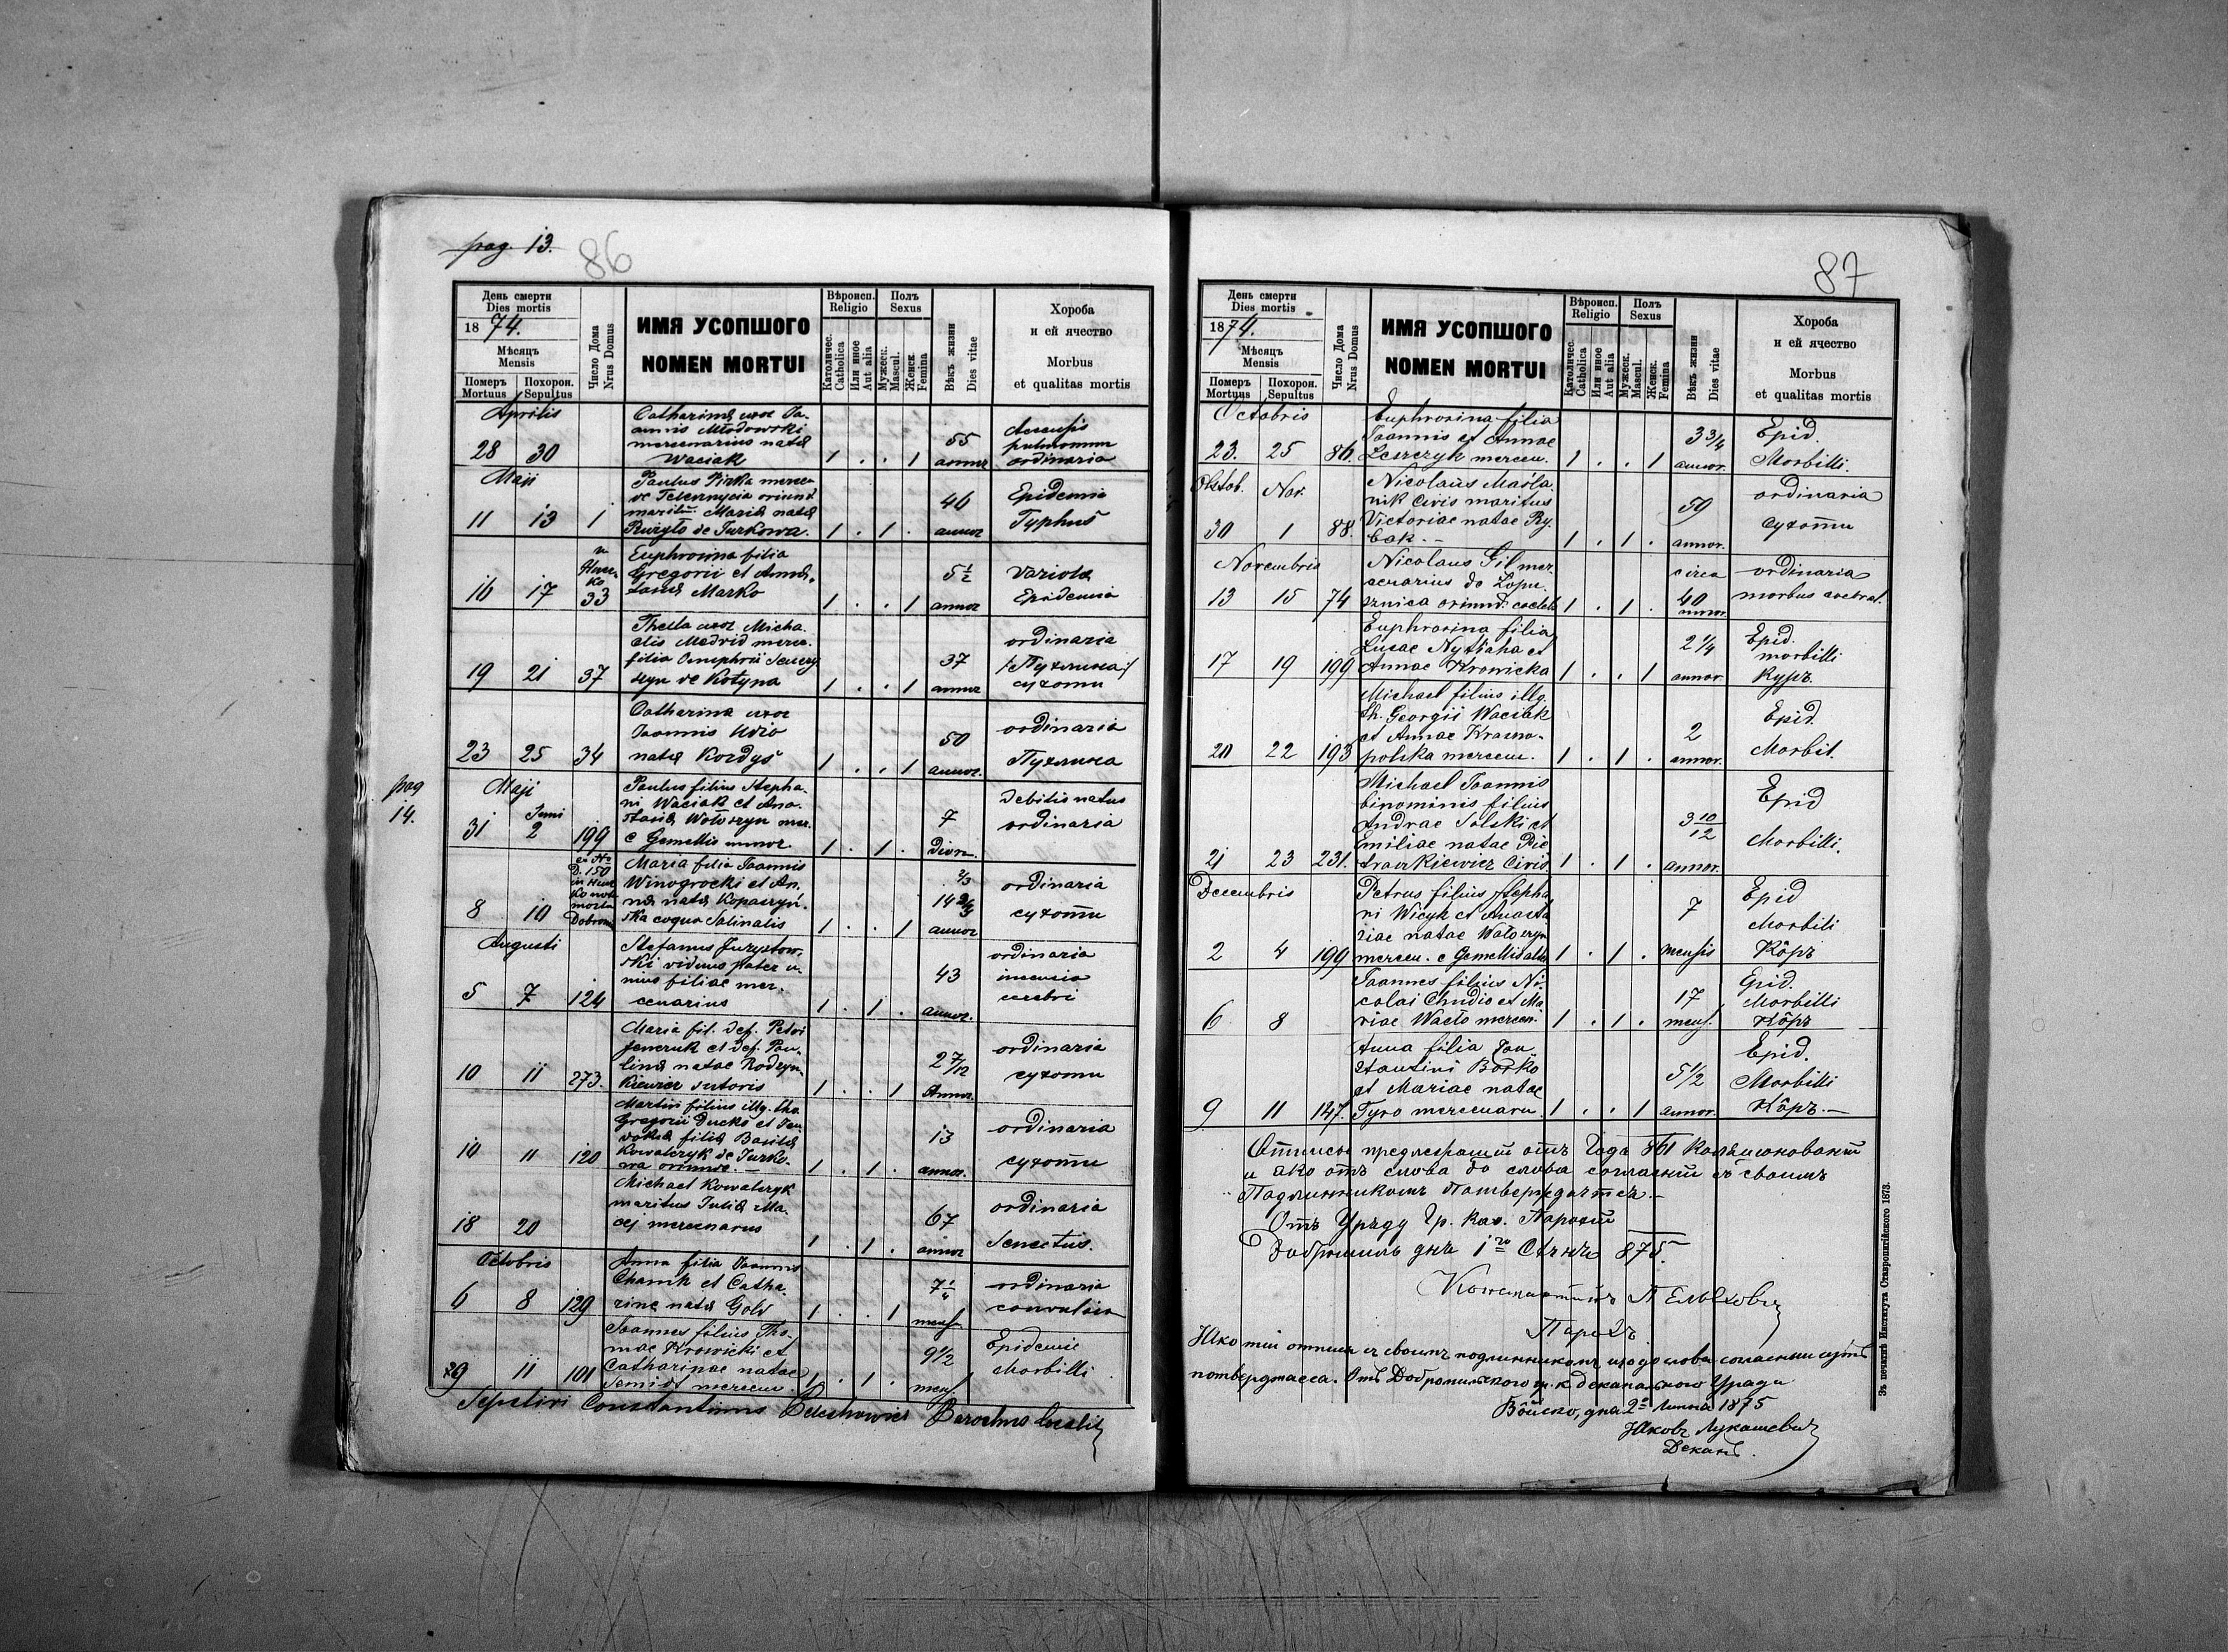 pag. 13.
86
День смерти
Dies mortis
1874.
Мѣсяцъ
Mensis
Померъ Похорон.
Mortuus Sepultus
Число Дома
Nrus Domus
ИМЯ УСОПШОГО
NOMEN MORTUI
Вѣроисп.
Religio
Католичес.
Catholica
Или иное
Aut alia
Полъ
Sexus
Мужеск.
Mascul.
Женск.
Femina
Вѣкъ жизни
Dies vitae
Хороба
и ей ячество
Morbus
et qualitas mortis
Aprilis
28 30
Catharina uxor Jo-
annis Młodowski
mercenarius nata
Waciak
1 . . 1
55
annor
pulmonum
ordinaria
Maji
11 13 1
Paulus Pirka merce
de Teternycia oriund
marit. Maria nata
de Turkowa.
1 . 1 .
46
annor
Epidemia
Typhus
16 17
33
Euphrosina filia
Gregorii et Anna-
tasia Marko
1 . . 1
5 1/2
annor
Variola
Epidemia
19 21 37
Thecla uxor Micha-
elis Madrid merce.
filia Onuphrii
de Kotyna
1 . . 1
37
annor
ordinaria
/Пухлина/
сухоты
23 25 34
Catharina uxor
Joannis Udio
nata Kordyś
1 . . 1
50
annor.
ordinaria
Пухлина
pag
14.
Maji
Juni
31 2 199
Paulus filius Stepha-
ni Waciak et Ana-
stasia Wołoszyn mer.
e Gemellis minor
1 . 1 .
7
Dier.
debilis natus
ordinaria
8 10
D. 150
Maria filia Joannis
Winogrocki et An-
na nata Kopaczyń-
ska coquar Salinalis
1 . . 1
annor
ordinaria
сухоты
Augusti
5 7 124
Stefanus Juzystow-
ski viduus pater u-
nius filiae mer-
cenarius
1 . 1 .
43
annor.
ordinaria
cerebri
10 11 273.
Maria fil. def. Petri
Senczuk et def. Pau-
lina natae Rodzyn-
kiewicz sutoris
1 . . 1
2 7/12
Annor.
ordinaria
сухоты
10 11 120
Martin filius illg. tho.
Gregorii Ducko et Eu-
dokia filia Basilii
Kowalczyk de Turko-
wa oriund. —
1 . 1 .
13
annor.
ordinaria
сухоты
18 20
Michael Kowalczyk
maritus Julia Ma-
cej mercenarus
1 . 1 .
67
annor
ordinaria
Senectus.
Octobris
6 8 129
Anna filia Joannis
Chanik et Catha-
rine nata Gold
1 . . 1
7 1/4
mens.
ordinaria
convulsio
9 11 101
Joannes filius Tho-
mae Krowicki et
Catharinae natae
Semidt mercen.
1 . 1 .
9 1/2
mens.
Epidemie
Morbilli
Sepelivi Constantinus Petechowicz Parochus localis
87
День смерти
Dies mortis
1874.
Мѣсяцъ
Mensis
Померъ Похорон.
Mortuus Sepultus
Число Дома
Nrus Domus
ИМЯ УСОПШОГО
NOMEN MORTUI
Вѣроисп.
Religio
Католичес.
Catholica
Или иное
Aut alia
Полъ
Sexus
Мужеск.
Mascul.
Женск.
Femina
Вѣкъ жизни
Dies vitae
Хороба
и ей ячество
Morbus
et qualitas mortis
Octobris
23. 25 86.
Euphrosina filia
Joannis et Annae
Leszczyk mercen.
1 . . 1
3 3/4
annor.
Epid.
Morbilli.
Oktob. Nov.
30 1 88.
Nicolaus Maśla-
nik Civis maritus
Victoriae natae Ry-
bak. —
1 . 1 .
59
annor.
ordinaria
сухоты
Novembris
13 15 74
Nicolaus Gil mer-
cenarius de Łopu-
sznica oriund. caeleb
1 . 1 .
circa
40
annor.
ordinaria
morbus cerebral.
17 19 199
Euphrosina filia
Lucae Nytkaha et
Annae Krowicka
1 . . 1
2 1/4
annor.
Epid.
morbilli
Куръ
20 22 193
Michael filius illg.
th. Georgii Waciak
et Annae Krasno-
polska mercen.
1 . 1 .
2
annor.
Epid.
Morbil.
21 23 231.
Michael Joannis
binominis filius
Andrae Solski et
Emiliae natae Pie-
traszkiewicz Civis
1 . 1 .
3 10/12
annor.
Epid
Morbilli.
Decembris
2 4 199
Petrus filius Stepha-
ni Wicyk et Anasta-
siae natae Wołoszyn
mercen. e Gemellis alter
1 . 1 .
7
mensis
Epid
Morbili
Кôръ
6 8
Joannes filius Ni-
colai Chudio et Ma-
riae Wacło mercen.
1 . 1 .
17
mens.
Epid.
Morbilli
Кôръ
9 11 147.
Anna filia Con-
stantini Borko
et Mariae natae
Tyro mercenaru
1 . . 1
5 1/2
annor.
Epid.
Morbilli
Кôръ. —
Отписъ предлежащій отъ Года
и яко отъ слова до слова согласный съ своимъ
Подлинникомъ потверждается. —
Отъ Уряду Гр. Кат. Парохіи
Добромиль дня 1го Сѣчня 875.
Константинъ
Парохъ
Яко тій отписи съ своимъ подлинникомъ слово до слова согласныи суть
потверджаеся. Отъ Добромильского гр. к. деканального Уряду
Вôйско, дня 2го Липня 1875
Яковъ Лукашевичъ
Деканъ.
Зъ печатнѣ Института Ставропигійского 1873.